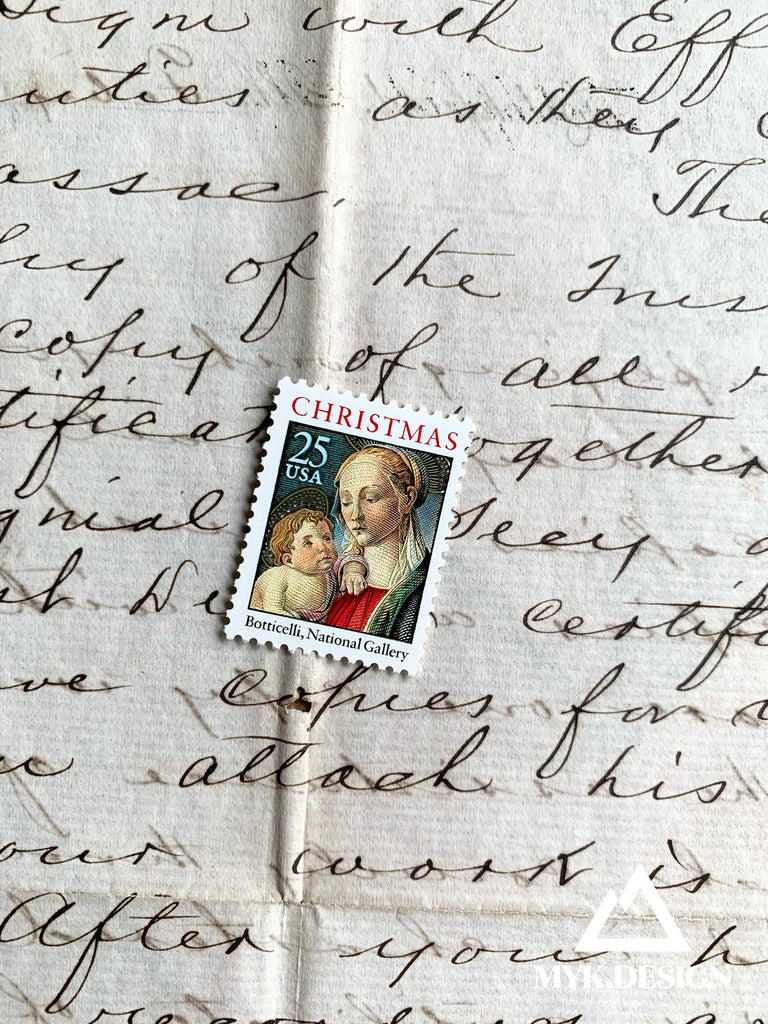 sign with Eff
uties as they
assoc, The
of the Mis
copy of all
tificat together
gnial Seey
certifi
ve copies for
attach his
our work is
After you h
CHRISTMAS
25
USA
Botticelli, National Gallery
MYK.DESIGN